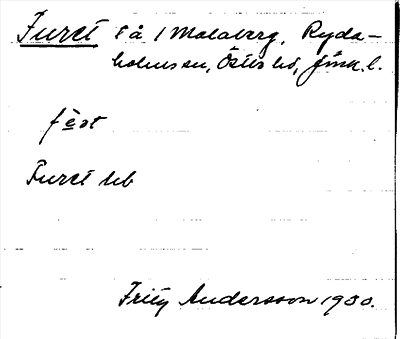 Furet På 1 Malaberg, Ryda-
holms sn, Östbo hd, Jönk. l.
Furet ub
Fritz Andersson 1930.